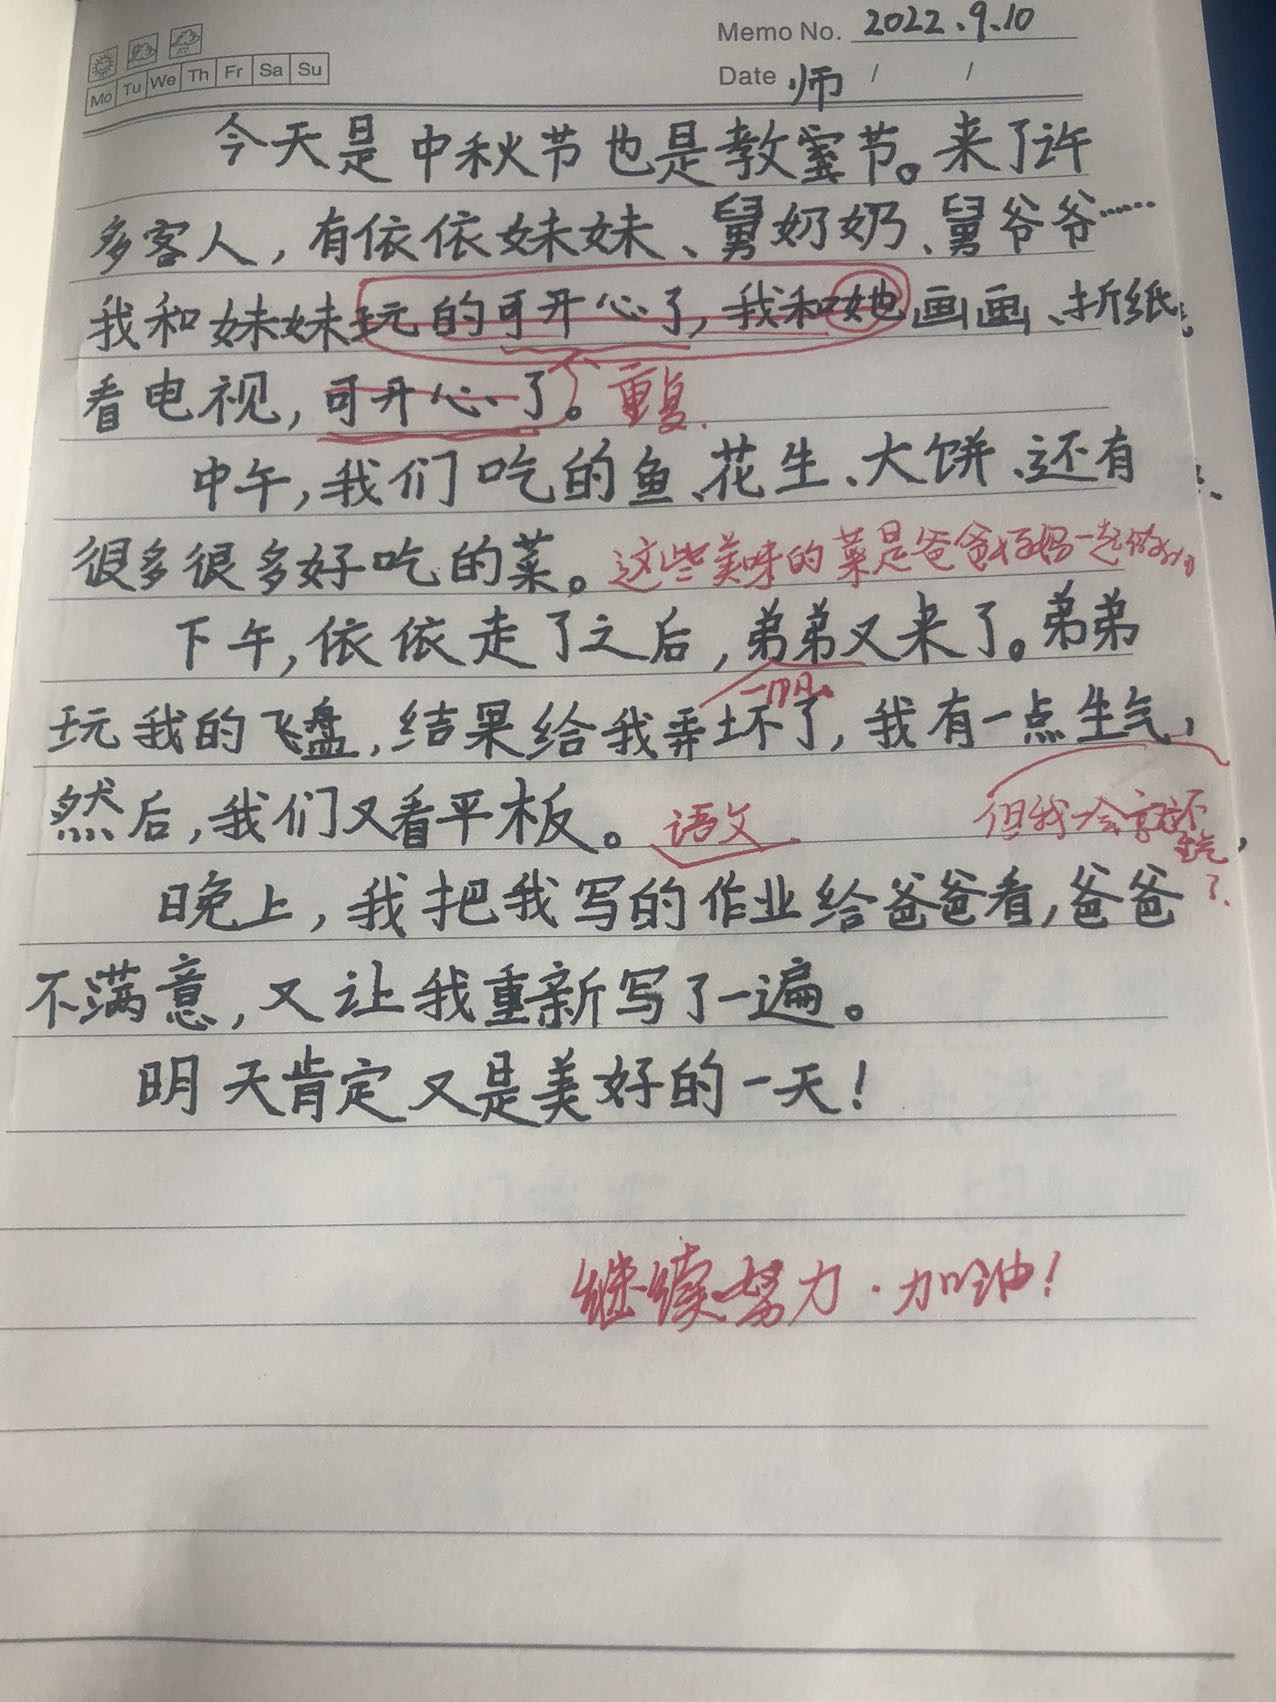 Memo No. 2022.9.10
Mo Tu We Th Fr Sa Su
Date / /
师
今天是中秋节也是教室节。来了许
多客人，有依依妹妹、舅奶奶、舅爷爷……
我和妹妹玩的可开心了，我和她画画、折纸、
看电视，可开心了。重复.
中午，我们吃的鱼、花生、大饼、还有
很多很多好吃的菜。这些美味的菜是爸爸妈妈一起做的
下午，依依走了之后，弟弟又来了。弟弟
玩我的飞盘，结果给我弄坏了，我有一点生气，
然后，我们又看平板。 语文 但我一会就不生气了.
晚上，我把我写的作业给爸爸看，爸爸
不满意，又让我重新写了一遍。
明天肯定又是美好的一天！
继续努力．加油！